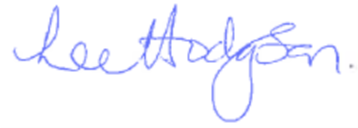 Lee Hodgson.